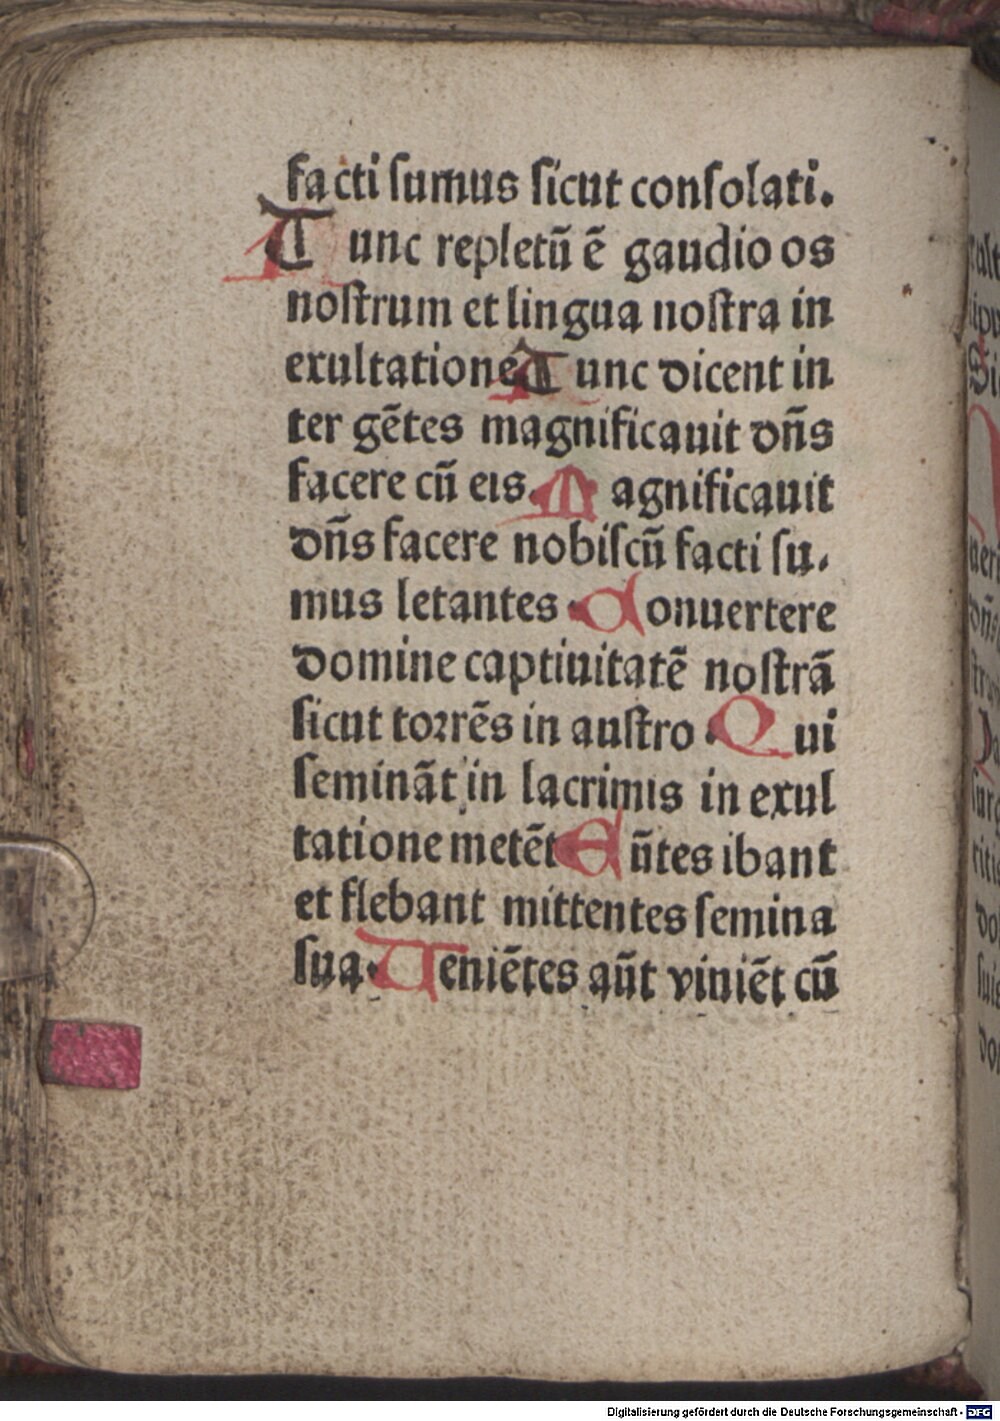 facti ſumus ſicut conſolati.
Tunc repletū ē gaudio os
noſtrum et lingua noſtra in
exultatione Tunc dicent in
ter gētes magnificauit dn̄s
facere cū eis. Magnificauit
dn̄s facere nobiſcū facti ſu.
mus letantes . Conuertere
domine captiuitatē noſtrā
ſicut torrēs in auſtro . Qui
ſemināt in lacrimis in exul
tatione metēt Eūtes ibant
et flebant mittentes ſemina
ſua. Ueniētes aūt viniēt cū
Digitalisierung gefördert durch die Deutsche Forschungsgemeinschaft - DFG